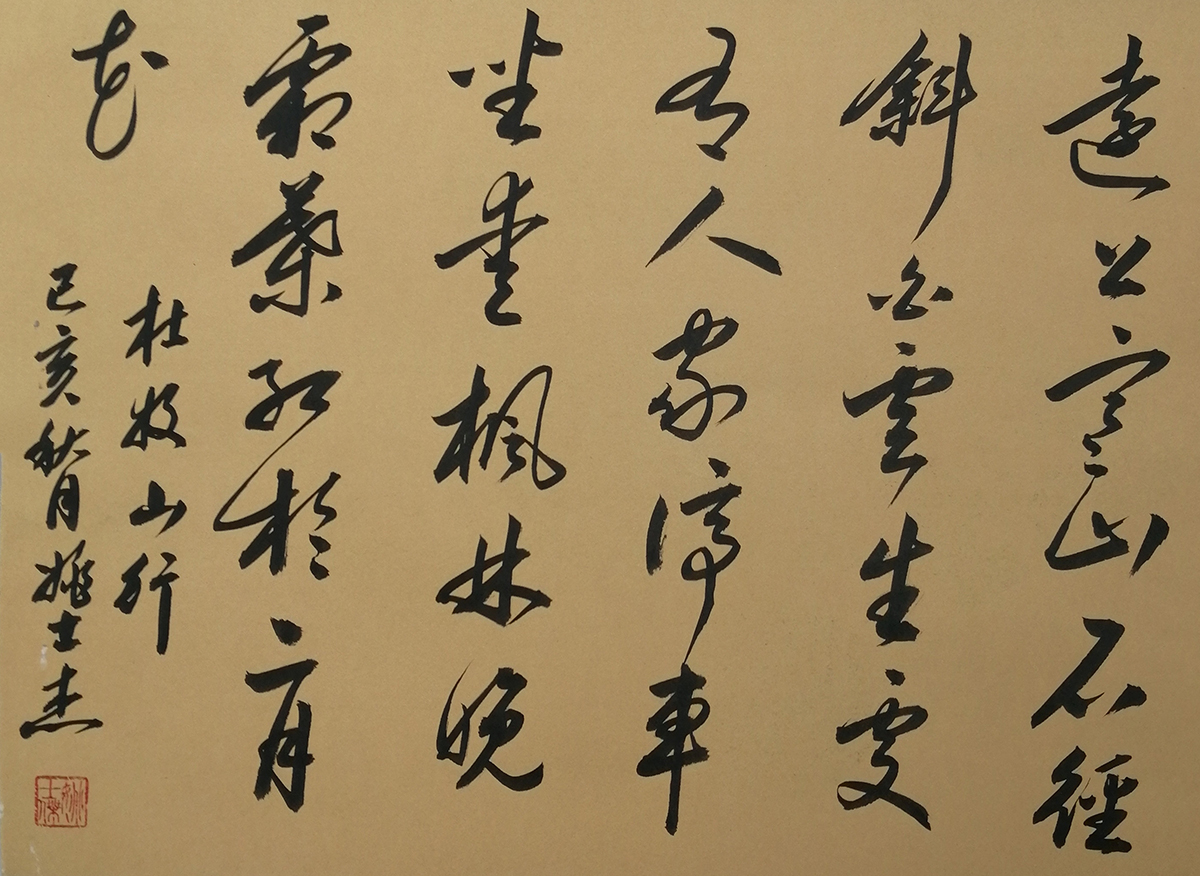 遠上寒山石徑
斜白雲生處
有人家停車
坐愛楓林晚
霜葉紅於二月
花
杜牧山行
己亥秋月姚士杰
姚士傑